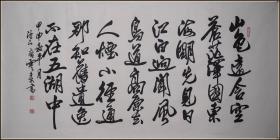 山色遠含空
蒼茫澤國東
海明先見日
江白迥聞風
鳥道高原去
人煙小徑通
那知舊遺逸
不在五湖中